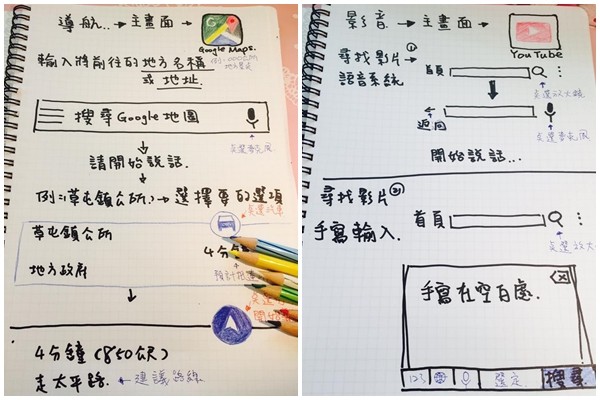 導航.. → 主畫面 →
Google Maps.
輸入將前往的地方名稱
或 地址.
搜尋Google地圖
點選麥克風
請開始說話.
例:(草屯鎮公所.) → 選擇要的選項
草屯鎮公所
4分鐘
地方政府
4分鐘(850公尺)
走太平路. ← 建議路線
影音. → 主畫面 →
YouTube
尋找影片①
語音系統
首頁
點選放大鏡
返回
點選麥克風
開始說話...
尋找影片②
手寫輸入.
首頁
點選放大
手寫在空白處.
123
選定
搜尋.